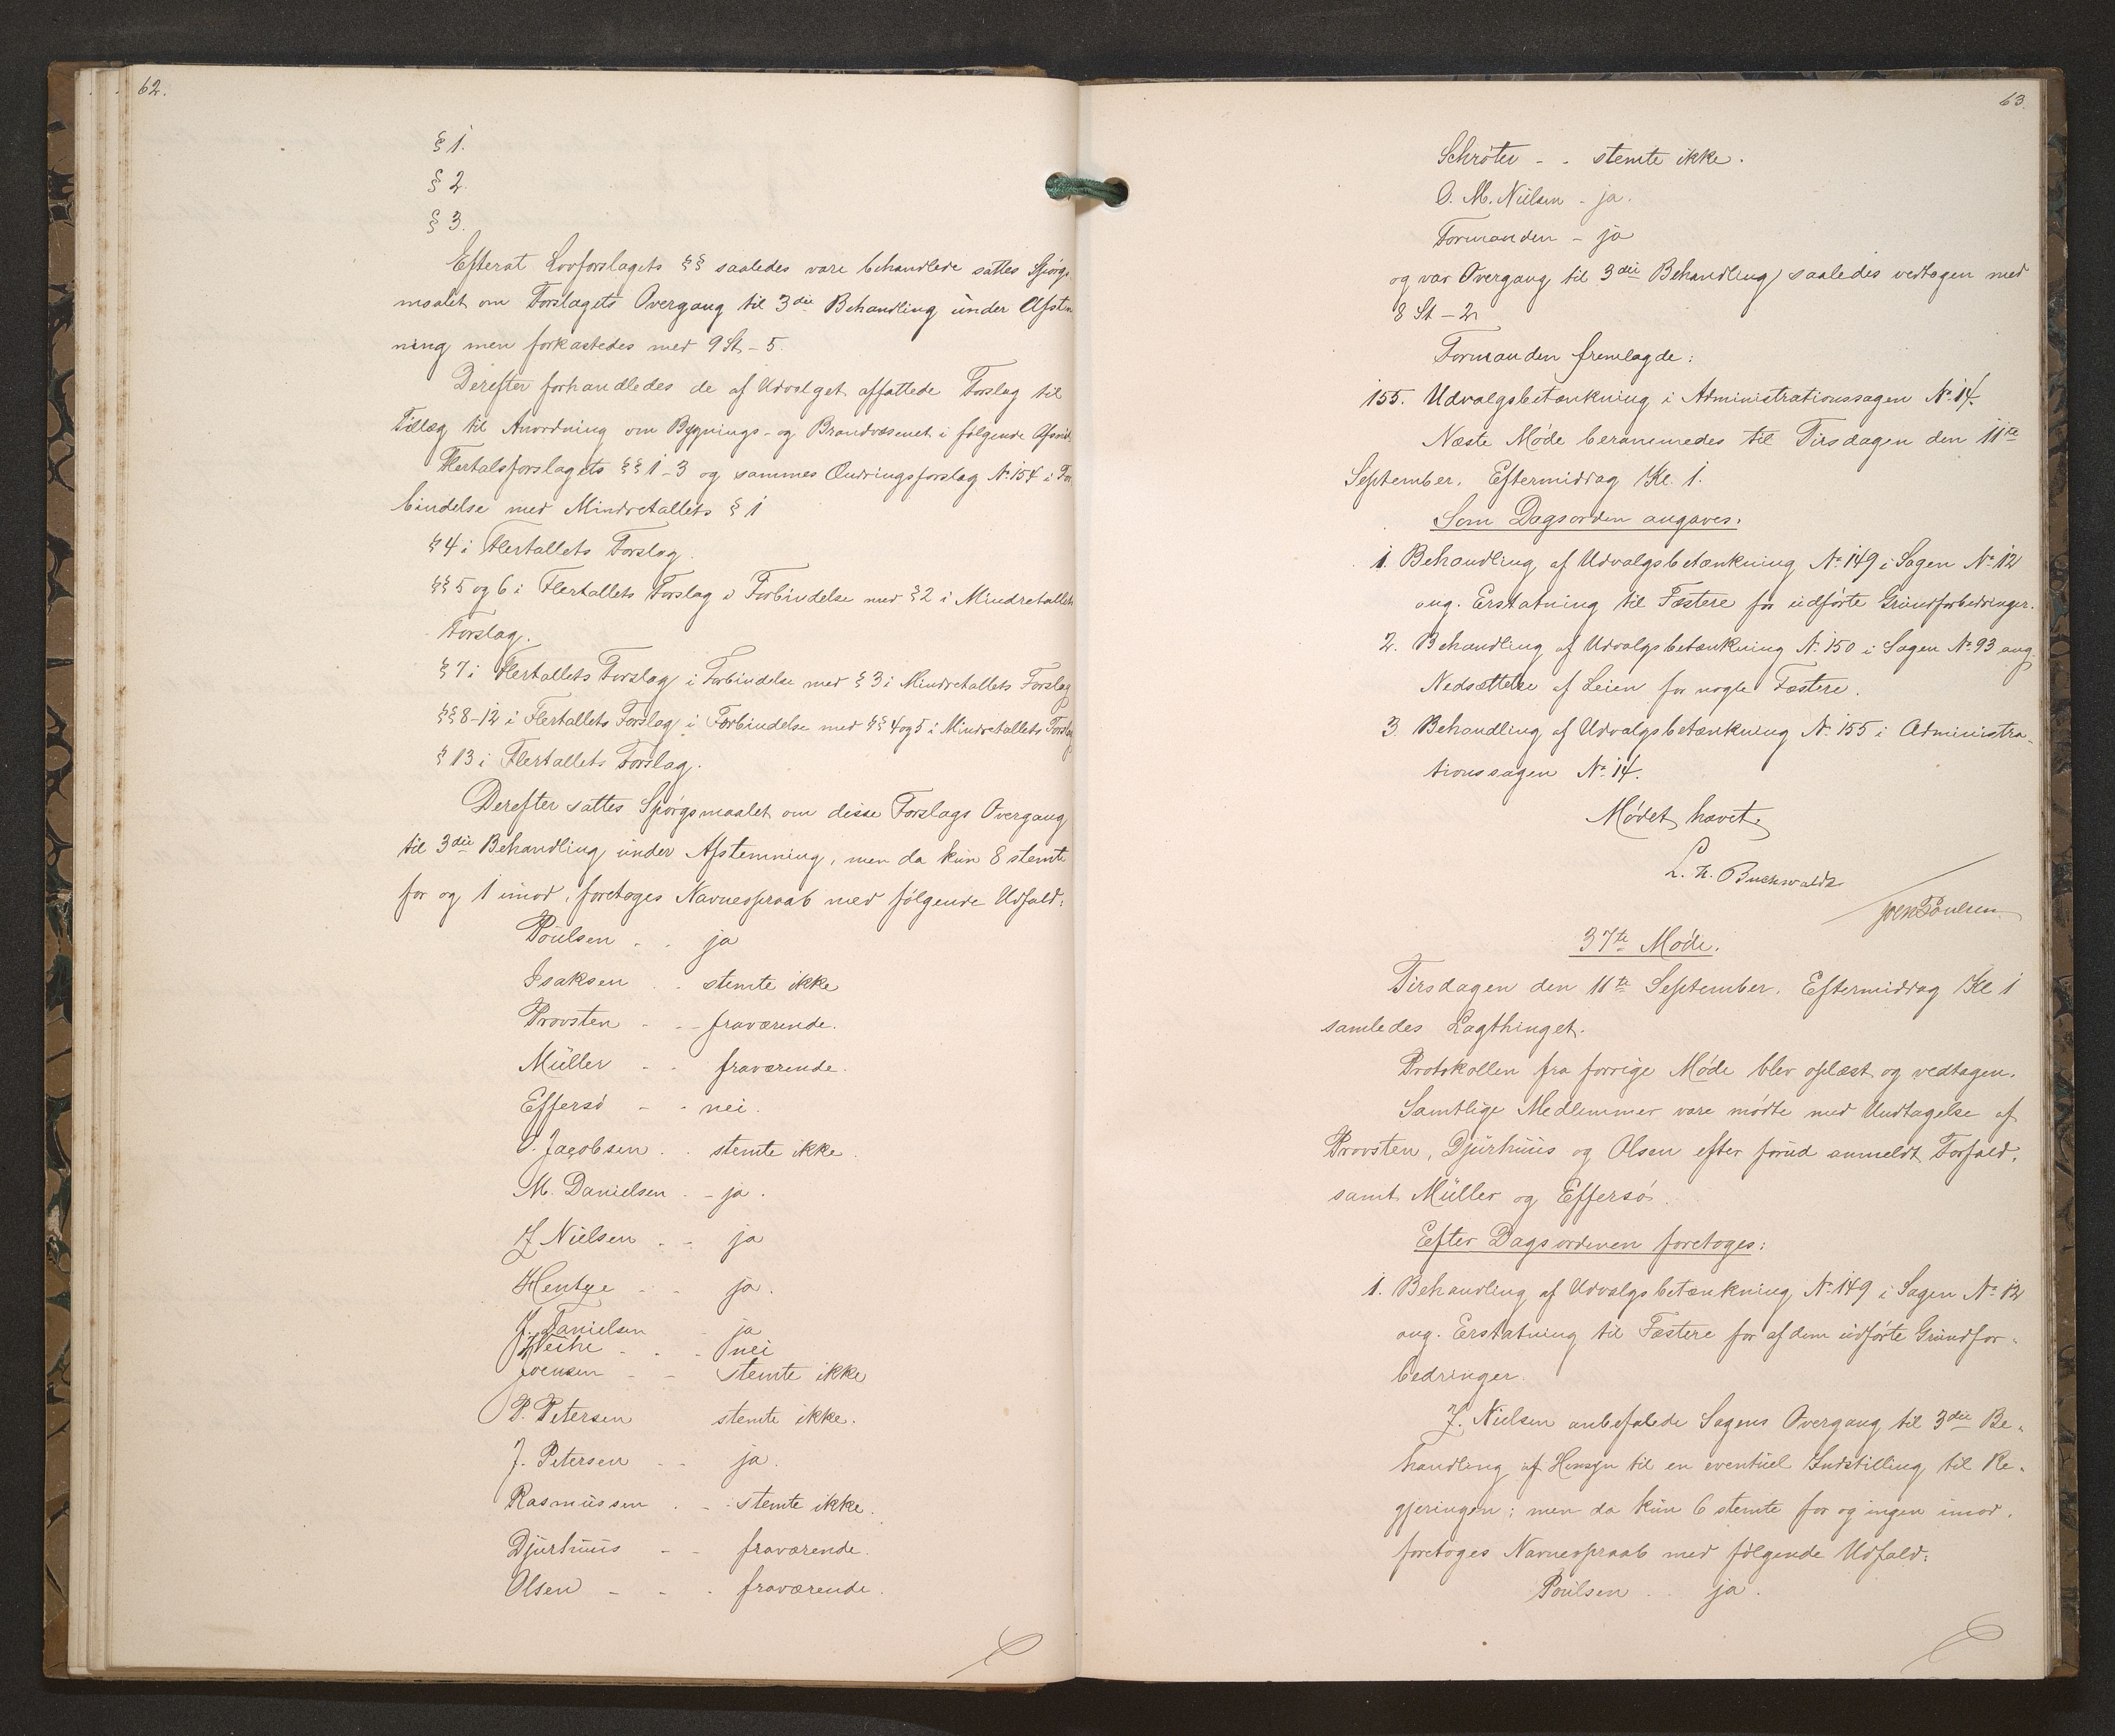 62.
§ 1.
§ 2.
§ 3.
Efterat Lovforslagets §§ saaledes vare behandlede sattes Spörgs
maalet om Forslagets Overgang til 3die Behandling under Afstem
ning men forkastedes med 9 St - 5.
Derefter forhandledes de af Udvalget affattede Forslag til
Tillæg til Anordning om Bygnings- og Brandvæsenet i følgende Afsnit
Flertalsforslagets §§ 1-3 og sammes Ændringsforslag No 154 i For
bindelse med Mindretallets § 1
§ 4 i Flertallets Forslag.
§§ 5 og 6 i Flertallets Forslag i Forbindelse med § 2 i Mindretallets
Forslag.
§ 7 i Flertallets Forslag i Forbindelse med § 3 i Mindretallets Forslag
§§ 8-12 i Flertallets Forslag i Forbindelse med §§ 4 og 5 i Mindretallets Forslag
§ 13 i Flertallets Forslag.
Derefter sattes Spörgsmaalet om disse Forslags Overgang
til 3die Behandling under Afstemning, men da kun 8 stemte
for og 1 imod, foretoges Navneopraab med følgende Udfald:
Poulsen - - ja
Isaksen - - stemte ikke
Provsten - - fraværende.
Müller - - fraværende.
Effersö - - nei.
O. Jacobsen - - stemte ikke.
M. Danielsen - - ja.
J. Nielsen - - ja
Hentze - - ja.
J. Danielsen - ja
Weihe - - nei
Joensen - - stemte ikke
P. Petersen stemte ikke.
J. Petersen - - ja.
Rasmussen - - stemte ikke.
Djurhuus - - fraværende.
Olsen - - - fraværende.
63.
Schröter - - stemte ikke.
O. M. Nielsen - ja.
Formanden - ja
og var Overgang til 3die Behandling saaledes vedtagen med
8 St - 2
Formanden fremlagde:
155. Udvalgsbetænkning i Administrationssagen No 14.
Næste Møde berammedes til Tirsdagen den 11te
September. Eftermiddag Kl 1.
Som Dagsorden angaves:
1. Behandling af Udvalgsbetænkning No 149 i Sagen No 12
ang. Erstatning til Fæstere for udførte Grundforbedringer.
2. Behandling af Udvalgsbetænkning No 150 i Sagen No 93 ang.
Nedsættelse af Leien for nogle Fæstere.
3. Behandling af Udvalgsbetænkning No 155 i Administra-
tionssagen No 14.
Mødet hævet.
L. Z. Buchwaldt
Joen Poulsen
37te Møde.
Tirsdagen den 11te September. Eftermiddag Kl 1
samledes Lagthinget.
Protokollen fra forrige Møde blev oplæst og vedtagen.
Samtlige Medlemmer vare mødte med Undtagelse af
Provsten, Djurhuus og Olsen efter forud anmeldt Forfald,
samt Müller og Effersö.
Efter Dagsordenen foretoges:
1. Behandling af Udvalgsbetænkning No 149 i Sagen No 12
ang. Erstatning til Fæstere for af dem udførte Grundfor-
bedringer.
J. Nielsen anbefalede Sagens Overgang til 3die Be-
handling af Hensyn til en eventuel Indstilling til Re-
gjeringen; men da kun 6 stemte for og ingen imod,
foretoges Navneopraab med følgende Udfald:
Poulsen - - ja.